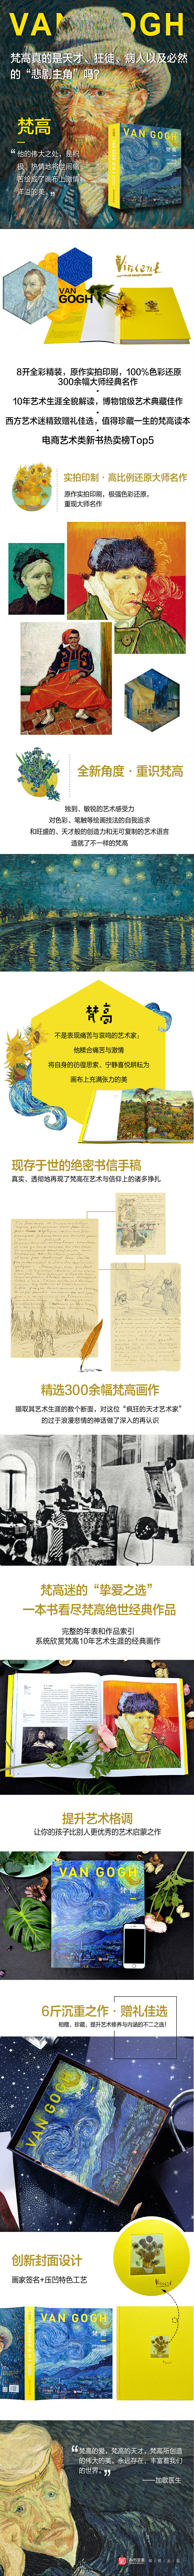 VAN GOGH
梵高真的是天才、狂徒、病人以及必然
的“悲剧主角”吗？
梵高
“他的伟大之处，是积
极、热情地将世间痛
苦绘成了画布上激情
洋溢的美。”
VAN GOGH
梵高
VAN
GOGH
Vincent
8开全彩精装，原作实拍印刷，100%色彩还原
300余幅大师经典名作
10年艺术生涯全貌解读，博物馆级艺术典藏佳作
西方艺术迷精致赠礼佳选，值得珍藏一生的梵高读本
电商艺术类新书热卖榜Top5
实拍印制·高比例还原大师名作
原作实拍印刷，极强色彩还原，
重现大师名作
全新角度·重识梵高
独到、敏锐的艺术感受力
对色彩、笔触等绘画技法的自我追求
和旺盛的、天才般的创造力和无可复制的艺术语言
造就了不一样的梵高
梵高
不是表现痛苦与哀鸣的艺术家；
他糅合痛苦与激情
将自身的彷徨思索、宁静喜悦耕耘为
画布上充满张力的美
现存于世的绝密书信手稿
真实、透彻地再现了梵高在艺术与信仰上的诸多挣扎
精选300余幅梵高画作
撷取其艺术生涯的数个断面，对这位“疯狂的天才艺术家”
的过于浪漫悲情的神话做了深入的再认识
梵高迷的“挚爱之选”
一本书看尽梵高绝世经典作品
完整的年表和作品索引
系统欣赏梵高10年艺术生涯的经典画作
提升艺术格调
让你的孩子比别人更优秀的艺术启蒙之作
VAN GOGH
梵高
6斤沉重之作·赠礼佳选
相赠、珍藏、提升艺术修养与内涵的不二之选！
VAN GOGH
创新封面设计
画家签名+压凹特色工艺
Vincent
VAN GOGH
梵高
“梵高的爱，梵高的天才，梵高所创造
的伟大的美，永远存在，丰富着我们
的世界。”
——加歇医生